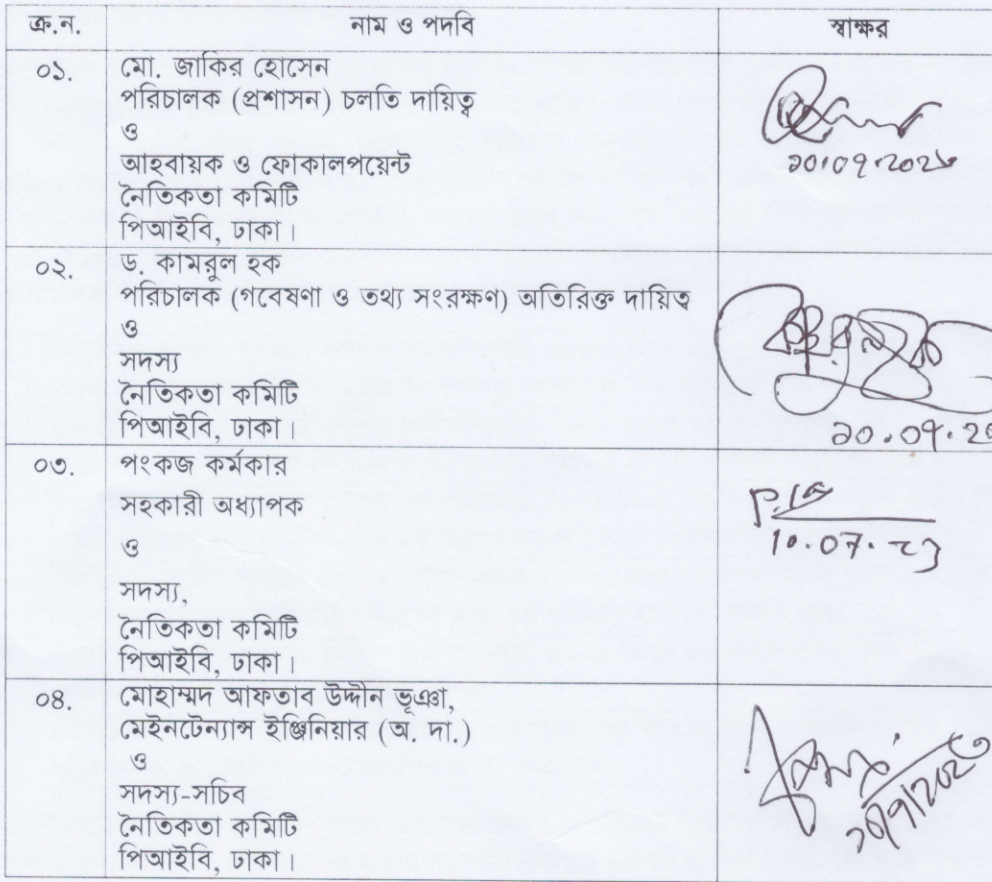 ক্র.ন. নাম ও পদবি স্বাক্ষর
০১. মো. জাকির হোসেন
পরিচালক (প্রশাসন) চলতি দায়িত্ব
ও
আহবায়ক ও ফোকালপয়েন্ট
নৈতিকতা কমিটি
পিআইবি, ঢাকা।
০২. ড. কামরুল হক
পরিচালক (গবেষণা ও তথ্য সংরক্ষণ) অতিরিক্ত দায়িত্ব
ও
সদস্য
নৈতিকতা কমিটি
পিআইবি, ঢাকা।
০৩. পংকজ কর্মকার
সহকারী অধ্যাপক
ও
সদস্য,
নৈতিকতা কমিটি
পিআইবি, ঢাকা।
10.07.23
০৪. মোহাম্মদ আফতাব উদ্দীন ভূঞা,
মেইনটেন্যান্স ইঞ্জিনিয়ার (অ. দা.)
ও
সদস্য-সচিব
নৈতিকতা কমিটি
পিআইবি, ঢাকা।